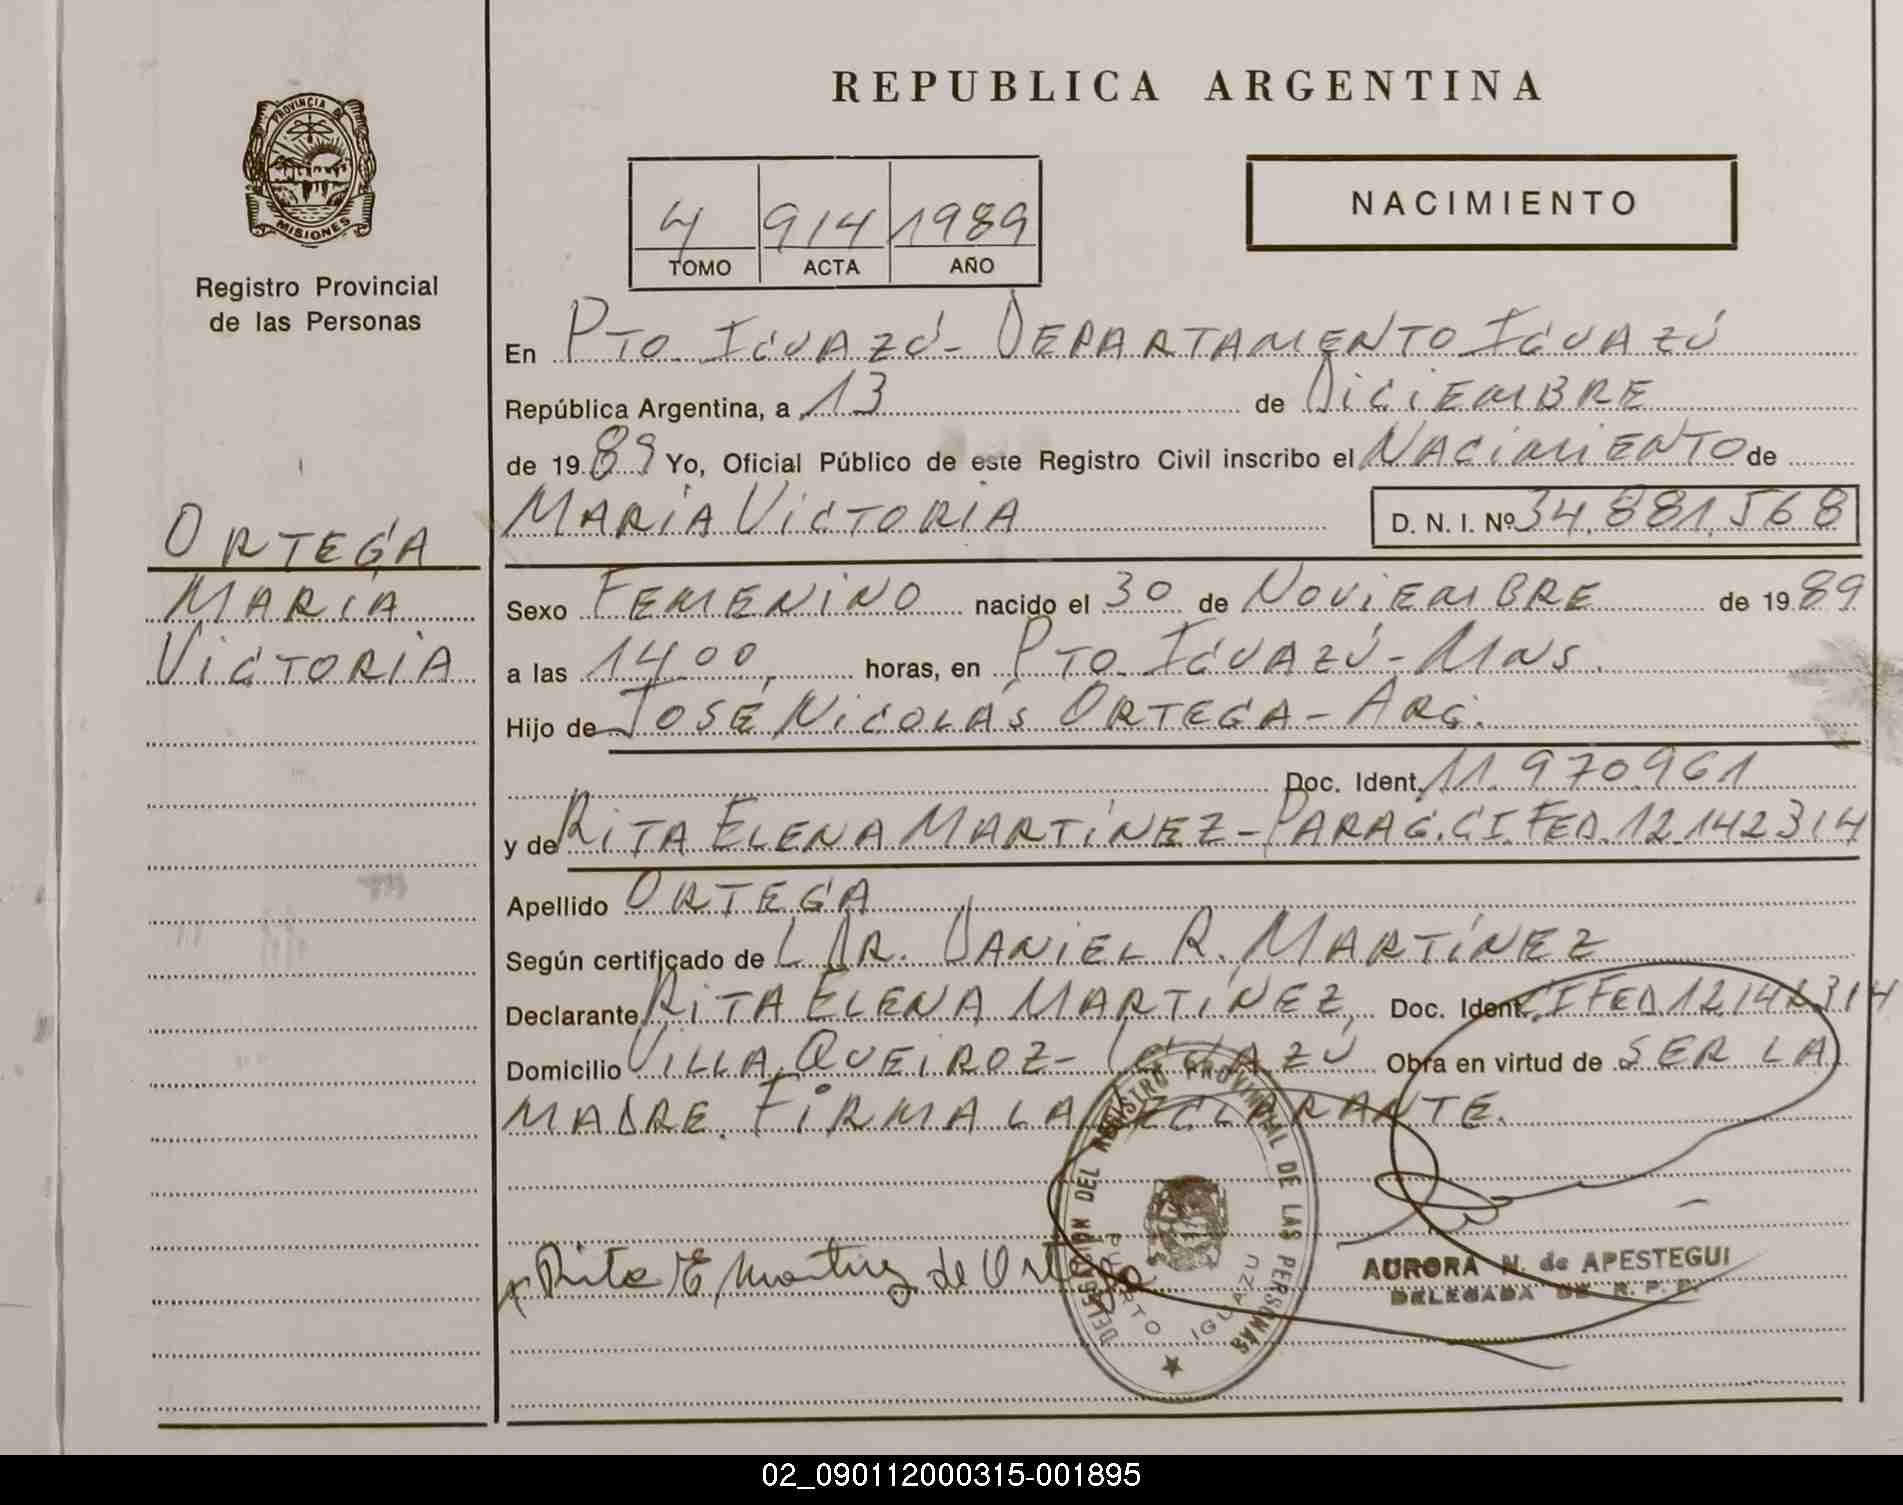 REPUBLICA ARGENTINA
PROVINCIA DE
MISIONES
Registro Provincial
de las Personas
NACIMIENTO
4 914 1989
TOMO ACTA AÑO
En PTO. IGUAZÚ- DEPARTAMENTO IGUAZÚ
República Argentina, a 13 de DICIEMBRE
de 1989 Yo, Oficial Público de este Registro Civil inscribo el NACIMIENTO de
MARÍA VICTORIA D. N. I. Nº 34.881.568
ORTEGA
MARIA
VICTORIA
Sexo FEMENINO nacido el 30 de NOVIEMBRE de 1989
a las 14,00, horas, en PTO. IGUAZÚ- MNS.
Hijo de JOSÉ NICOLÁS ORTEGA- ARG.
Doc. Ident. 11.970.961
y de RITA ELENA MARTÍNEZ- PARAG. CI. FED. 12.142314
Apellido ORTEGA
Según certificado de L DR. DANIEL R. MARTÍNEZ
Declarante RITA ELENA MARTÍNEZ, Doc. Ident. CI FED 12142314
Domicilio VILLA QUEIROZ- IGUAZÚ Obra en virtud de SER LA
MADRE. FIRMA LA DECLARANTE.
DELEGACION DEL REGISTRO PROVINCIAL DE LAS PERSONAS
PUERTO IGUAZU
Rita E Martinez de Ortega
AURORA N. de APESTEGUI
DELEGADA DE R. P. P.
02_090112000315-001895